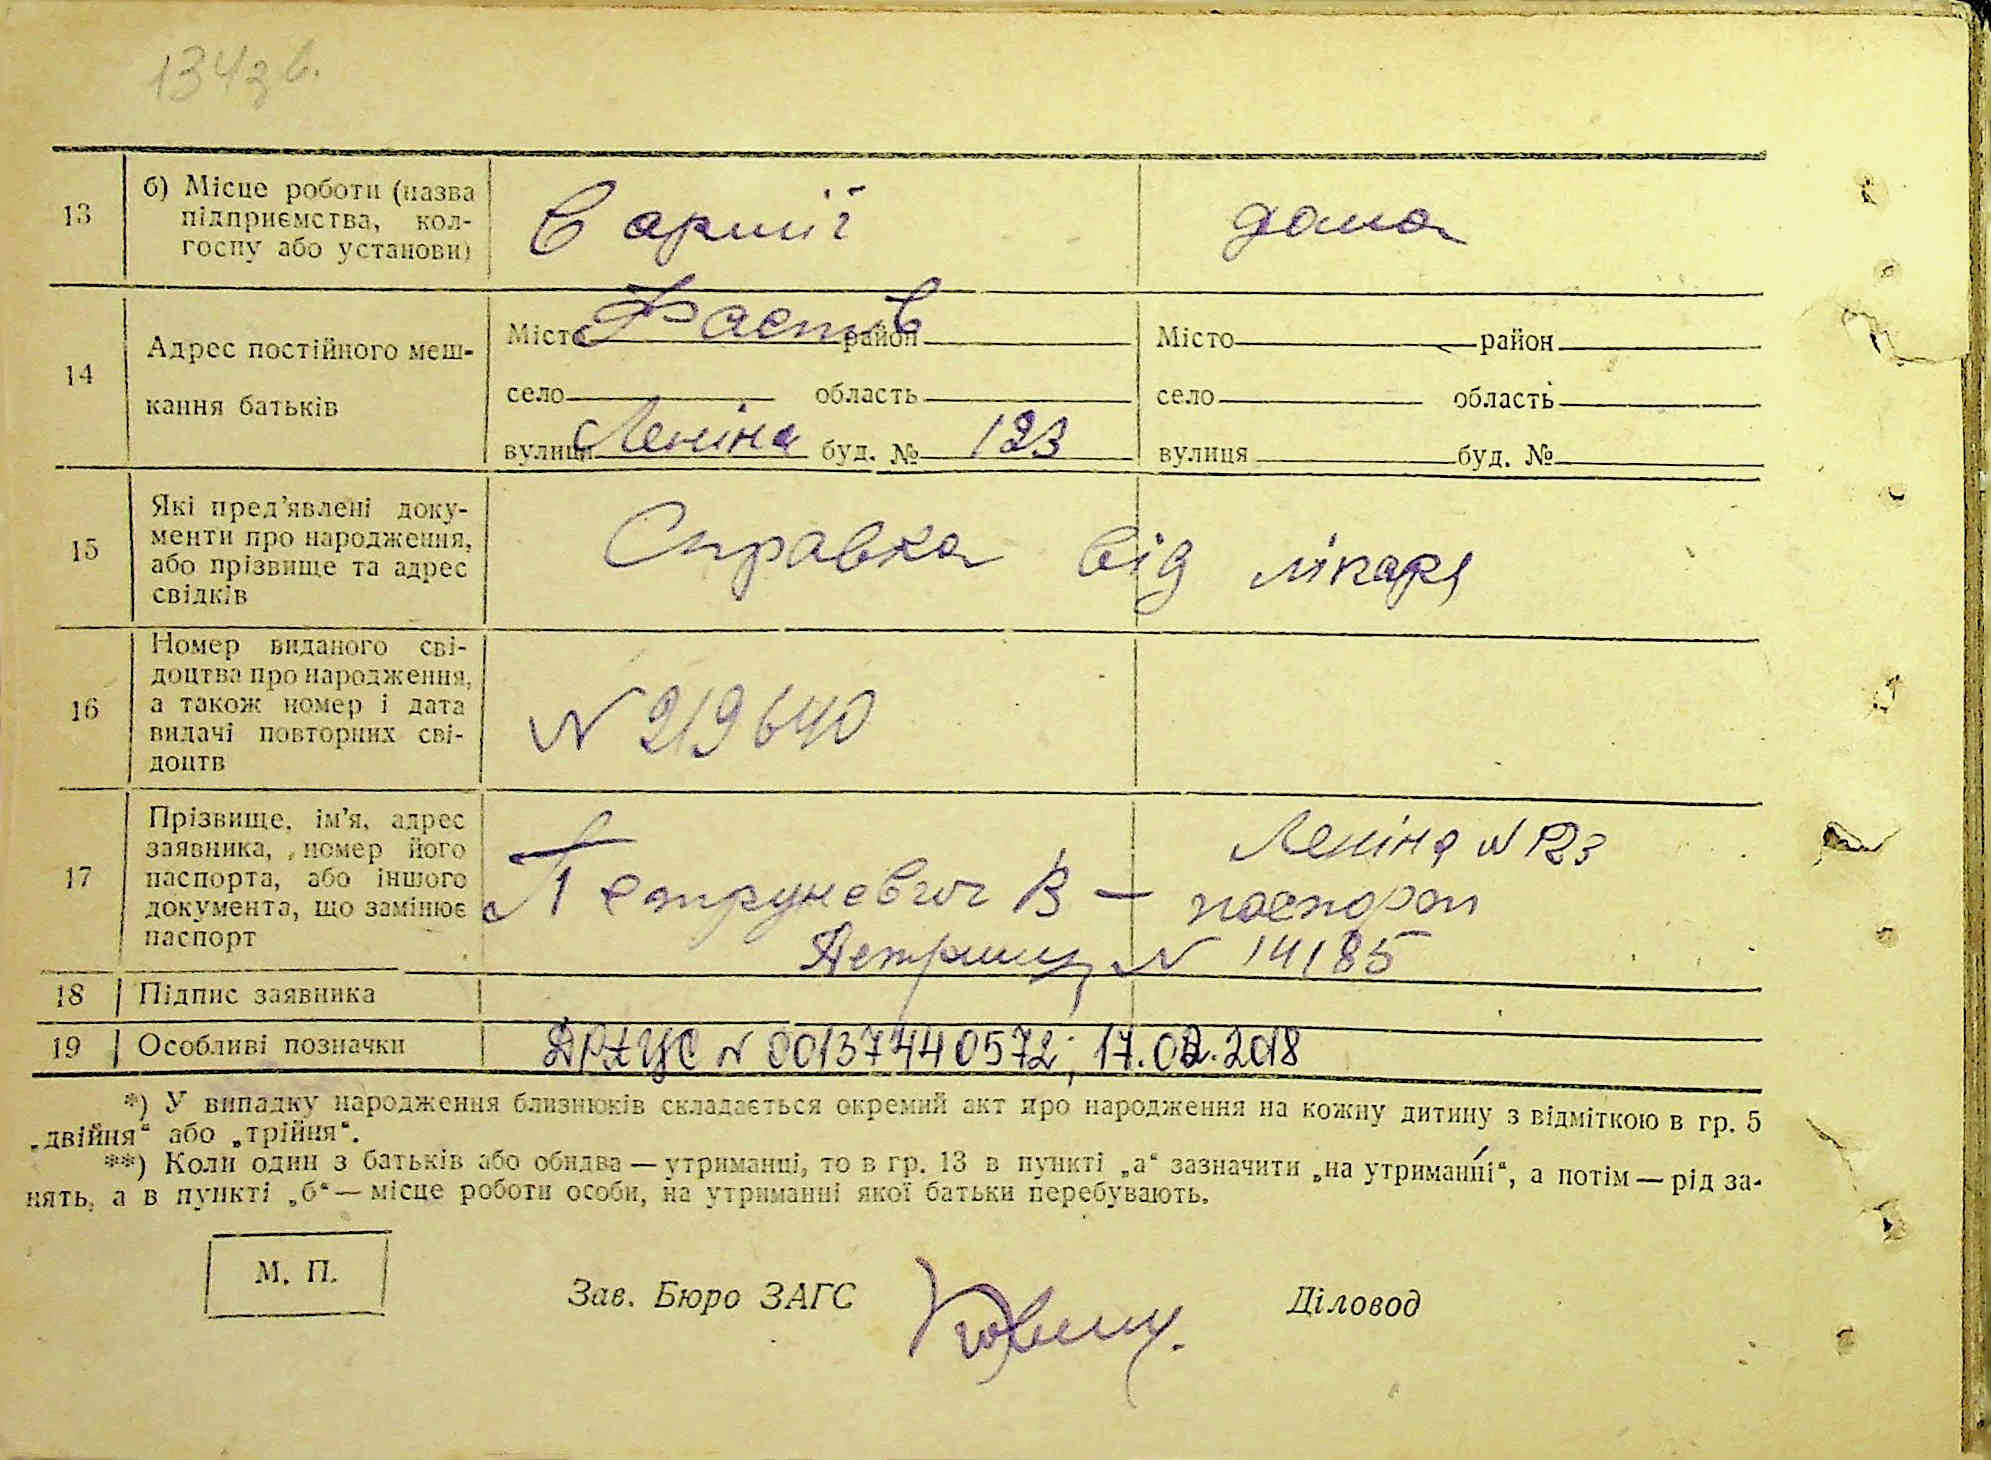 134зв.
13 б) Місце роботи (назва підприємства, колгоспу або установи) В армії дома
14 Адрес постійного мешкання батьків
Місто Фастів район Місто район
село область село область
вулиця Леніна буд. № 123 вулиця буд. №
15 Які пред’явлені документи про народження, або прізвище та адрес свідків Справка від лікаря
16 Номер виданого свідоцтва про народження, а також номер і дата видачі повторних свідоцтв N 219640
17 Прізвище, ім’я, адрес заявника, номер його паспорта, або іншого документа, що замінює паспорт
Леніна N 123
Петруневич В — паспорт
N 14185
18 Підпис заявника
19 Особливі позначки ДРАЦС N 00137440572; 17.02.2018
*) У випадку народження близнюків складається окремий акт про народження на кожну дитину з відміткою в гр. 5
„двійня“ або „трійня“.
**) Коли один з батьків або обидва — утриманці, то в гр. 13 в пункті „а“ зазначити „на утриманні“, а потім — рід за-
нять, а в пункті „б“ — місце роботи особи, на утриманні якої батьки перебувають.
М. П.
Зав. Бюро ЗАГС Діловод